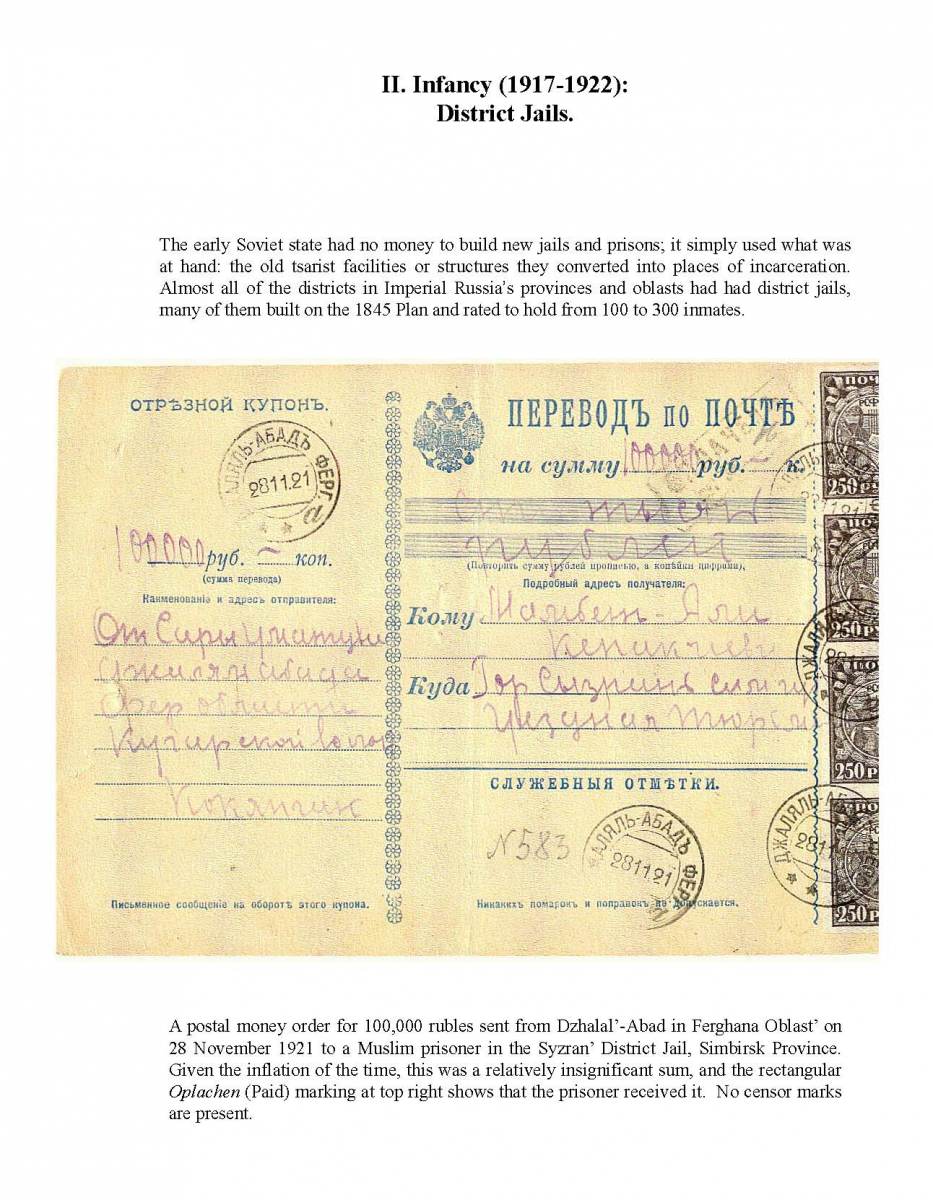 II. Infancy (1917-1922):
District Jails.
The early Soviet state had no money to build new jails and prisons; it simply used what was
at hand: the old tsarist facilities or structures they converted into places of incarceration.
Almost all of the districts in Imperial Russia's provinces and oblasts had had district jails,
many of them built on the 1845 Plan and rated to hold from 100 to 300 inmates.
ОТРѢЗНОЙ КУПОНЪ.
ФЕРГ.
28 11.21
а
100000 руб. — коп.
(сумма перевода)
Наименованіе и адресъ отправителя:
От
Фер области
Кугарской
Письменное сообщеніе на оборотѣ этого купона.
ПЕРЕВОДЪ по ПОЧТѢ
на сумму 100000 руб. — к.
Сто тысяч
рублей
(Повторить сумму рублей прописью, а копѣйки цифрами),
Подробный адресъ получателя:
Кому Мамбет-Али
Куда Гор Сызрань
уездная
СЛУЖЕБНЫЯ ОТМѢТКИ.
N 583
ДЖАЛЯЛЬ-АБАДЪ ФЕРГ.
28 11.21
Никакихъ помарокъ и поправокъ не допускается.
250 Р
250 Р
250 Р
250 Р
A postal money order for 100,000 rubles sent from Dzhalal'-Abad in Ferghana Oblast' on
28 November 1921 to a Muslim prisoner in the Syzran' District Jail, Simbirsk Province.
Given the inflation of the time, this was a relatively insignificant sum, and the rectangular
Oplachen (Paid) marking at top right shows that the prisoner received it. No censor marks
are present.